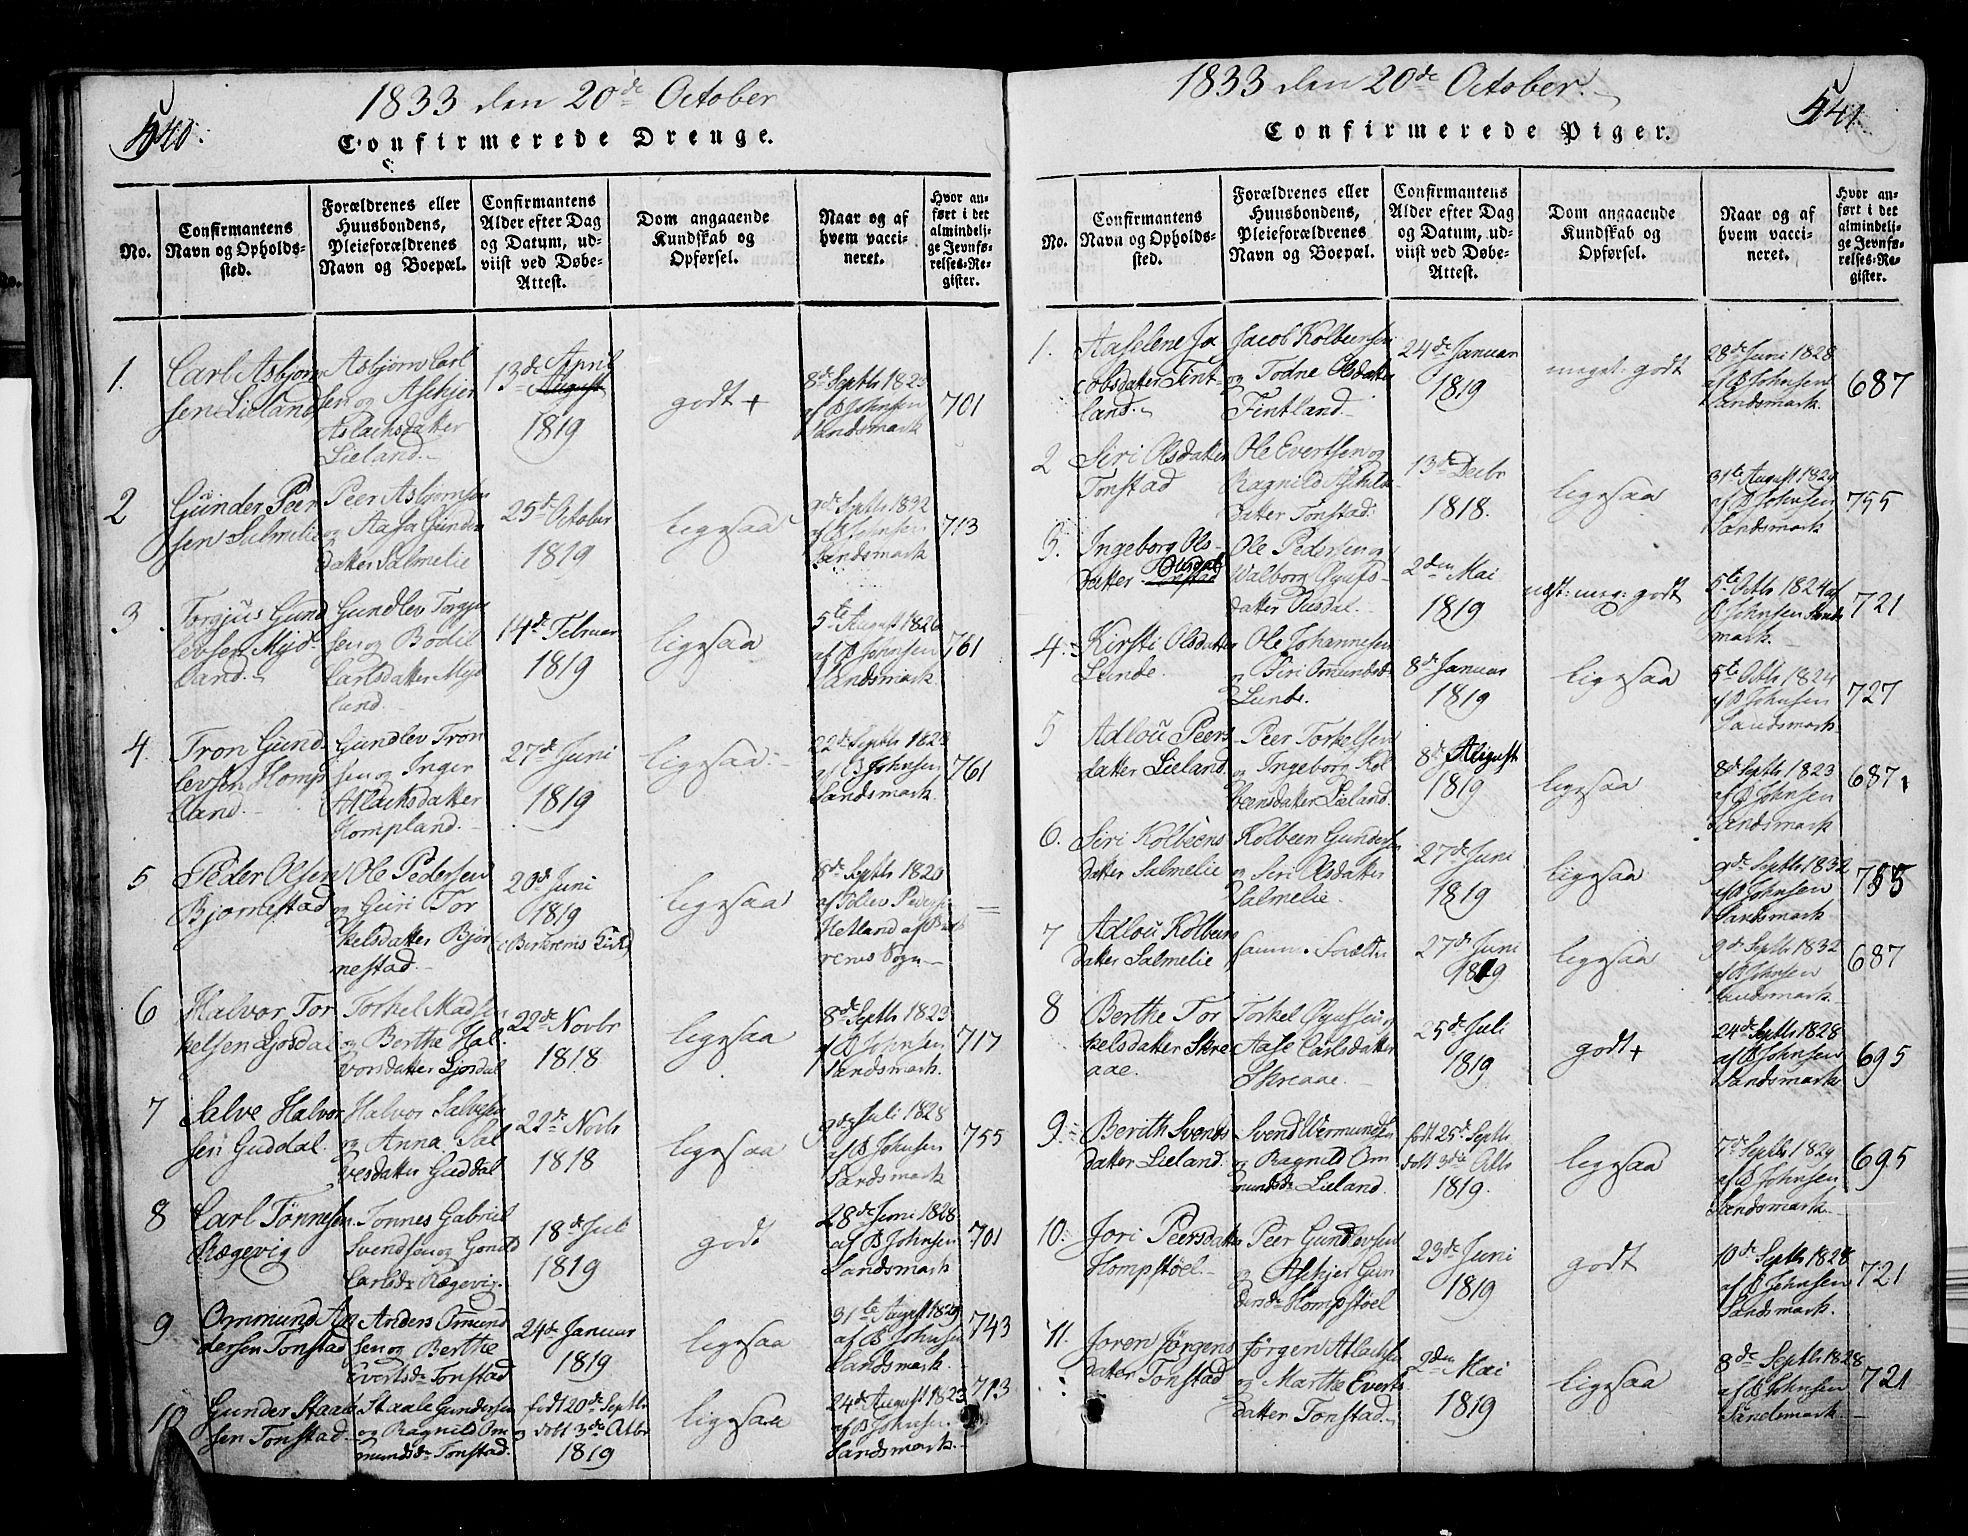 1833 den 20de October
540.
Confirmerede Drenge.
No.
Confirmantens
Navn og Opholds-
sted.
Forældrenes eller
Huusbondens,
Pleieforældrenes
Navn og Boepæl.
Confirmantens
Alder efter Dag
og Datum, ud-
viist ved Døbe-
Attest.
Dom angaaende
Kundskab og
Opførsel.
Naar og af
hvem vacci-
neret.
Hvor an-
ført i det
almindeli-
ge Jevnfø-
relses-Re-
gister.
1.
Carl Asbjørn
sen Lieland
Asbjørn Carl
sen og Aschjer
Aslachsdatter
Lieland.
13de April
August
1819
godt +
8de Septbr 1823
af B Johnsen
Sandsmark
701
2
Gunder Peer
sen Salmelie
Peer Asbjørnsen
og Aasa Gunder
datter Salmelie
25de October
1819
ligesaa
9de Septbr 1832
af B Johnsen
Sandsmark
713
3.
Torgjus Gund
levsen Myd-
land.
Gundlev Torgju
sen og Bodil
Carlsdatter Myd
land.
14de Februar
1819
ligesaa
5te August 1826
af B Johnsen
Sandsmark.
761
4.
Tron Gund
levsen Homp
land.
Gundlev Tron
sen og Inger
Atlachsdatter
Hompland.
27de Juni
1819
ligesaa.
22de Septbr 1823
af B Johnsen
Sandsmark.
761
5
Peder Olsen
Bjørnestad
Ole Pedersen
og Guri Tor
kelsdatter Bjør
nestad.
20de Juni
1819
ligesaa
8de Septbr 1820
Hetland af
rems Sogn
6
Halvor Tor
kelsen Josdal
Torkel Madsen
og Berthe Hal-
vorsdatter Josdal
22de Novbr
1818
ligesaa
8de Septbr 1823
af B Johnsen
Sandsmark.
717
7
Salve Halvor
sen Guddal.
Halvor Salvesen
og Anna Sal
vesdatter Guddal
22de Novbr
1818
ligesaa
9de Juli 1828
af B Johnsen
Sandsmark
755
8
Carl Tønnesen
Rægevig
Tonnes Gabriel
Svendsen og Gunild
Carlsdr Rægevig.
18de Juli
1819
godt
28de Juni 1828
af B Johnsen
Sandsmark
701
9
Ommund An
dersen Tonstad
Anders Omund
sen og Berthe
Evertsdr Tonstad
24de Januar
1819
ligesaa
31te August 1829
af B Johnsen
Sandsmark.
743
10
Gunder Staale
sen Tonstad
Staale Gundersen
og Ragnild Om
mundsdr Tonstad.
født 20de Septbr
og døbt 3die Octbr
1819
ligesaa
24de August 1823
af B Johnsen.
Sandsmark.
713
1833 den 20de October.
541.
Confirmerede Piger.
No.
Confirmantens
Navn og Opholds-
sted.
Forældrenes eller
Huusbondens,
Pleieforældrenes
Navn og Boepæl.
Confirmantens
Alder efter Dag
og Datum, ud-
viist ved Døbe-
Attest.
Dom angaaende
Kundskab og
Opførsel.
Naar og af
hvem vacci-
neret.
Hvor an-
ført i det
almindeli-
ge Jevnfø-
relses-Re-
gister.
1.
Aaselene Ja
cobsdatter Fint-
land.
Jacob Kolbensen
og Todne Olsdatter
Fintland
24de Januar
1819
meget godt
28de Juni 1828
af B Johnsen
Sandsmark.
687
2
Siri Olsdatter
Tonstad
Ole Evertsen og
Ragnild Aschils
datter Tonstad.
13de Decbr
1818.
ligesaa
31te August 1829
af B Johnsen
Sandsmark
755
3.
Ingeborg Ols-
datter Ousdal
Ole Pedersen og
Walborg Øyufs-
datter Ousdal.
2den Mai
1819
meg: godt
5te Octbr 1824 af
B Johnsen Sands
mark.
721
4.
Kirsti Olsdatter
Lunde.
Ole Johannesen
og Siri Omundsdr
Lunde.
8de Januar
1819
ligesaa
5te Octbr 1824
af B Johnsen
Sandsmark
727
5
Adlou Peers
datter Lieland
Peer Torkelsen
og Ingeborg Kol
beensdatter Lieland.
8de August
1819
ligesaa
8de Septbr 1823
af B Johnsen
Sandsmark
687
6.
Siri Kolbeens
datter Salmelie
Kolbeen Gundersen
og Siri Olsdatter
Salmelie.
27de Juni
1819
ligesaa
9de Septbr 1832
af B Johnsen
Sandsmark
755
7
Adlou Kolbeens
datter Salmelie
samme Foræld
27de Juni
1819
ligesaa
9de Septbr 1832
af B Johnsen
Sandsmark.
687
8
Berthe Tor
kelsdatter Skre
aae.
Torkel Øyufsen og
Aase Carlsdatter
Skreaae.
25de Juli
1819
godt +
24de Septbr 1828
af B Johnsen
Sandsmark
695
9.
Berith Svends
datter Lieland.
Svend Wermundsen
og Ragnild Om
mundsdr Lieland.
født 25de Septbr
døbt 3die Octbr
1819.
ligesaa
7de Septbr 1829
af B Johnsen
Sandsmark.
695
10.
Jori Peersdatter
Hompstøel.
Peer Gundlevsen
og Aschjer Gun
dersdr Hompstøel
23de Juni
1819
godt
10de Septbr 1828
af B Johnsen
Sandsmark.
721
11.
Joren Jørgens
datter Tonstad
Jørgen Atlachsen
og Marthe Everts
datter Tonstad.
2den Mai
1819
ligesaa
8de Septbr 1828
af B Johnsen
Sandsmark.
721